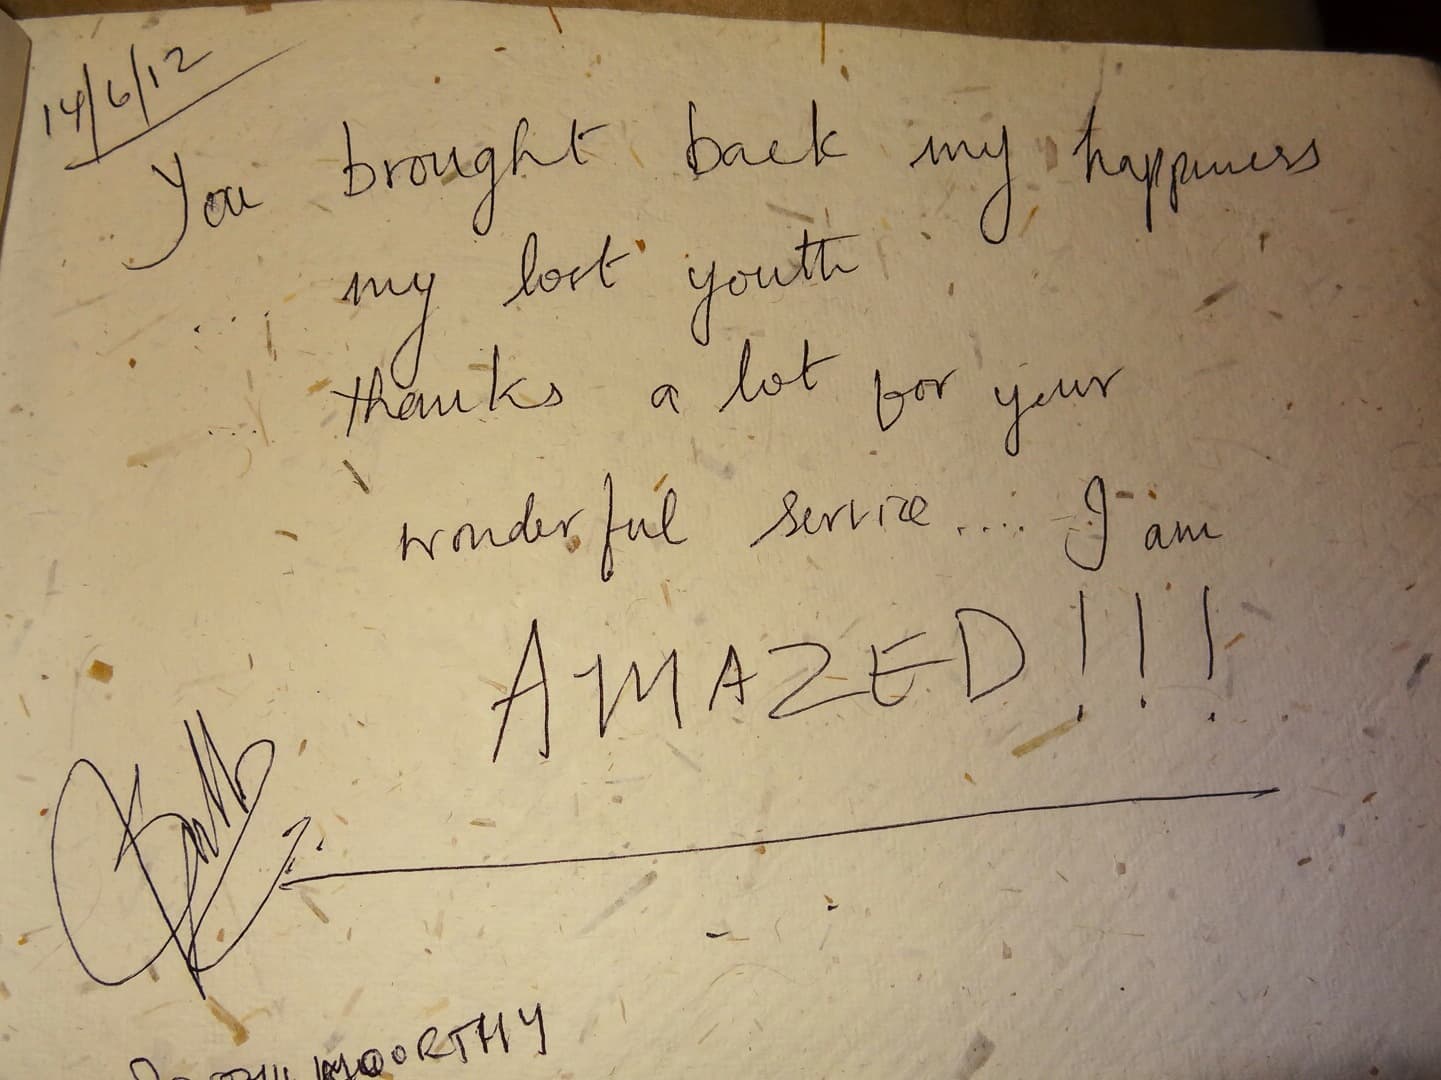 14/6/12
You brought back my happiness
... my lost youth
... thanks a lot for your
wonderful service .... I am
AMAZED!!!
MOORTHY